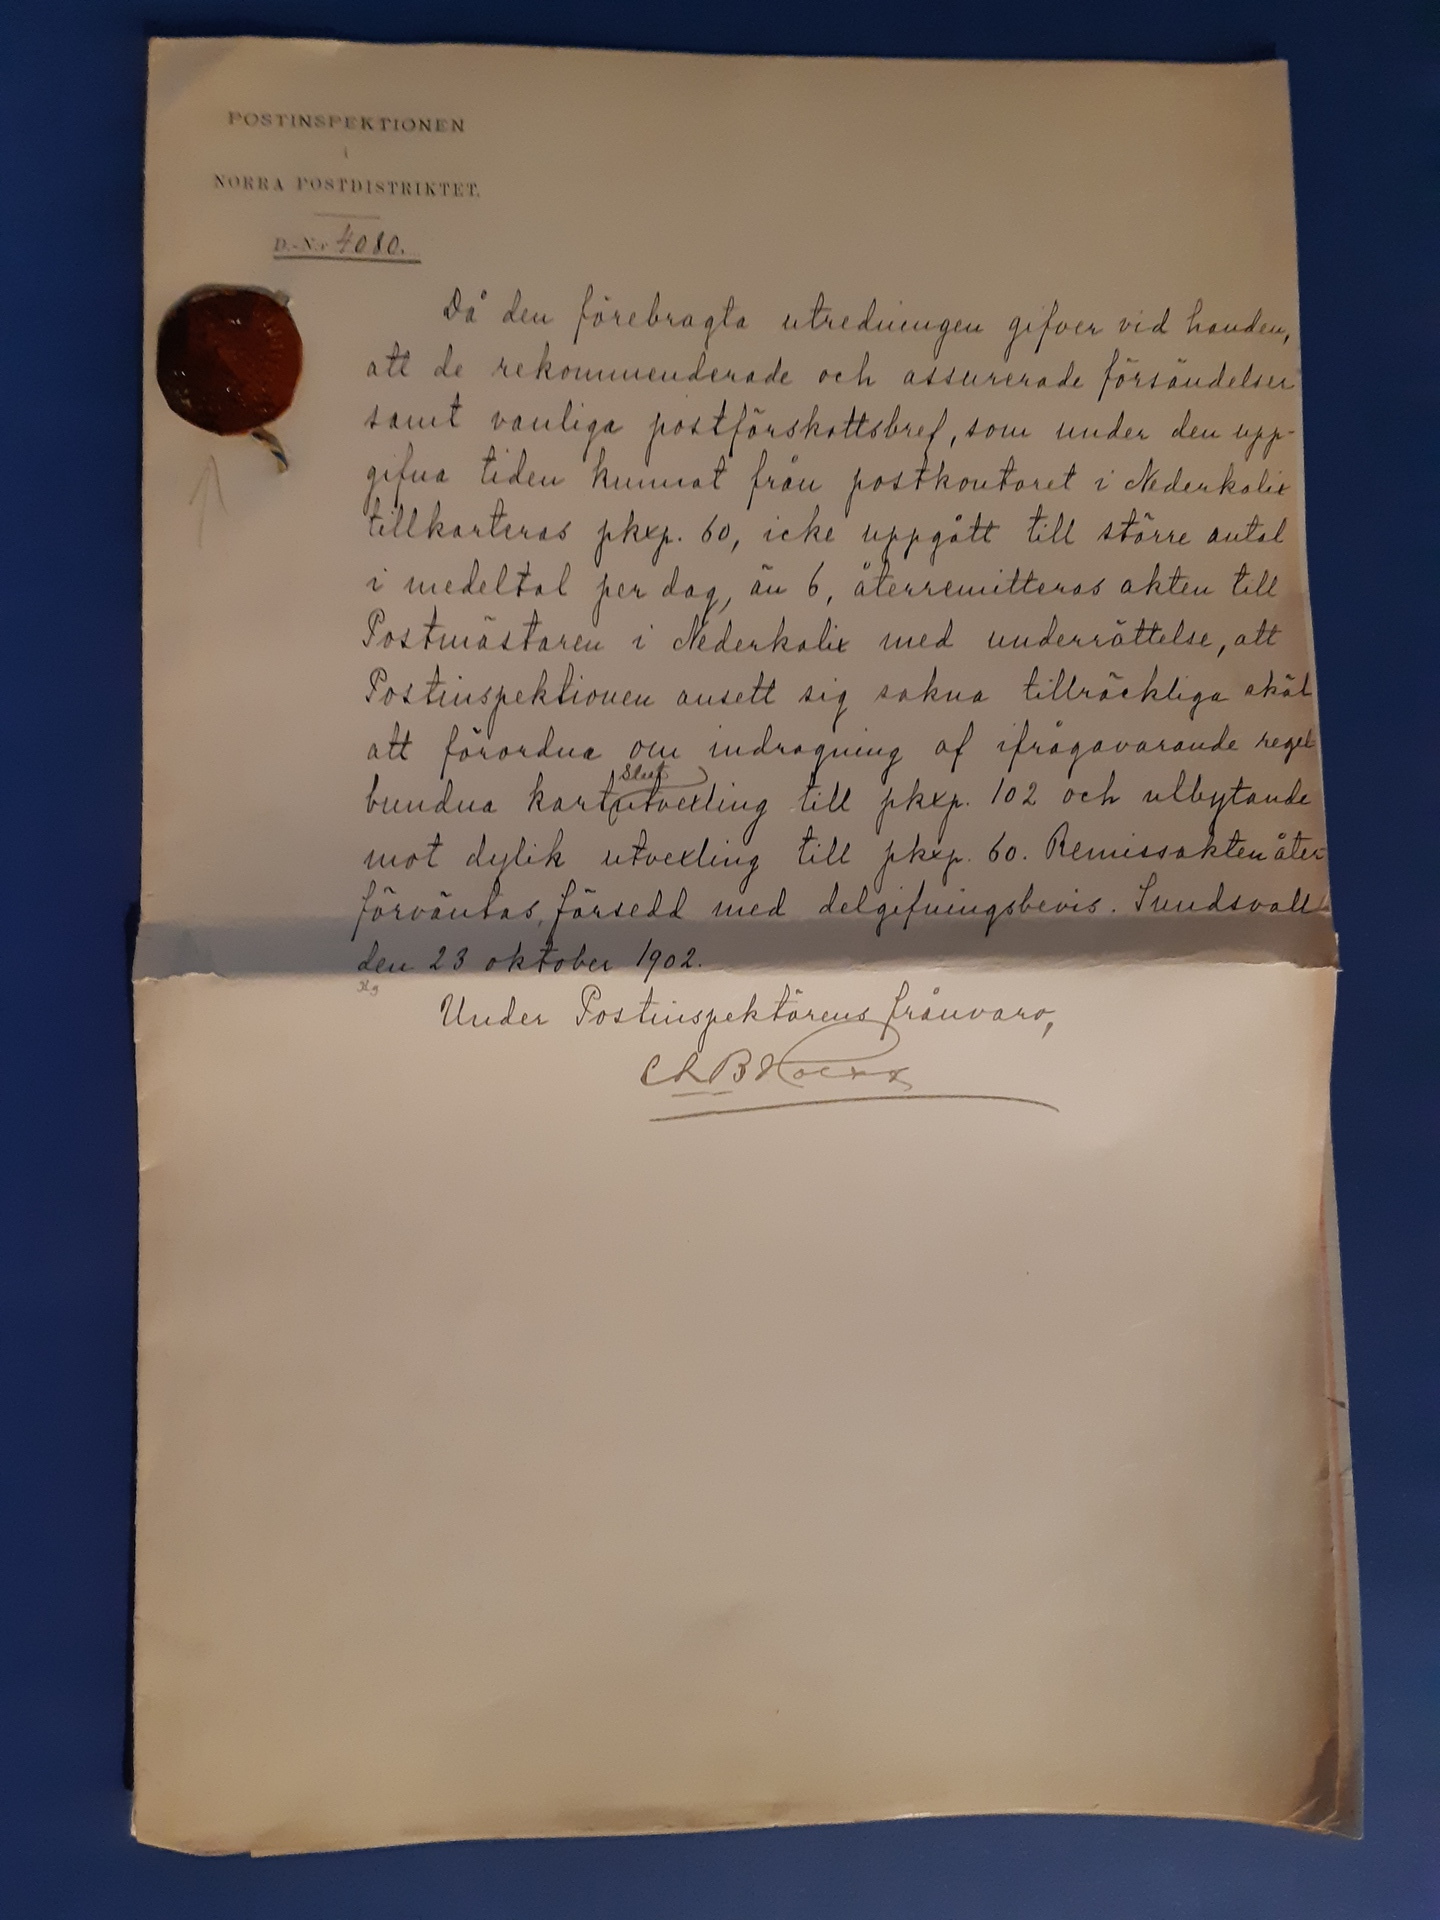 POSTINSPEKTIONEN
i
NORRA POSTDISTRIKTET.
D.-N:r 4080.
Då den förebragta utredningen gifver vid handen,
att de rekommenderade och assurerade försändelser
samt vanliga postförskottsbref, som under den upp-
gifna tiden kunnat från postkontoret i Nederkalix
tillkarteras pkxp. 60, icke uppgått till större antal
i medeltal per dag, än 6, återremitteras akten till
Postmästaren i Nederkalix med underrättelse, att
Postinspektionen ansett sig sakna tillräckliga skäl
att förordna om indragning af ifrågavarande regel
Slut
bundna kartutvexling till pkxp. 102 och utbytande
mot dylik utvexling till pkxp. 60. Remissakten åter-
förväntas, försedd med delgifningsbevis. Sundsvall
den 23 oktober 1902.
Under Postinspektörens frånvaro,